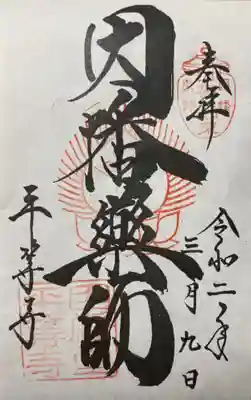 奉拝
令和二年
三月九日
因幡薬師
平等寺